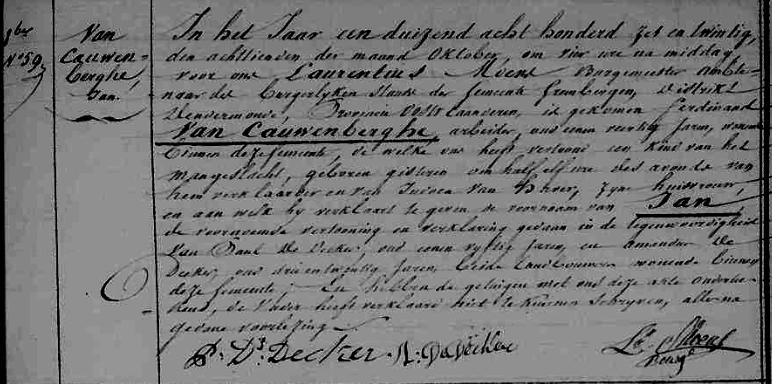 N° 59
Van
Cauwen-
berghe,
Jan.
In het Jaar een duizend acht honderd zes en twintig,
den achttienden der maand Oktober, om vier ure na middag
voor ons Laurentius Moens Burgemeester Ambte-
naar des burgerlyken stands der Gemeente Grembergen, District
Dendermonde, Provincie Oost Vlaanderen, is gekomen Ferdinand
Van Cauwenberghe, arbeider, oud eenen veertig jaren, wonende
binnen deze Gemeente, de welke ons heeft vertoond een kind van het
mangeslacht, geboren gisteren om half elf ure des avonds van
hem verklaarder en van Judoca Van, zyne huisvrouw,
en aan welk hy verklaart te geven de voornaam van Jan,
de voornoemde vertooning en verklaring gedaan in de tegenwoordigheid
van Paul De Decker, oud eenen vyftig jaren, en Amandus De
Decker, oud drie en twintig jaren, beide landbouwers wonende binnen
deze Gemeente; en hebben de getuigen met ons deze akte onderte-
kend, de Vader heeft verklaard niet te kunnen schryven, alles na
gedane voorlezing.
P: D: Decker A: De Decker